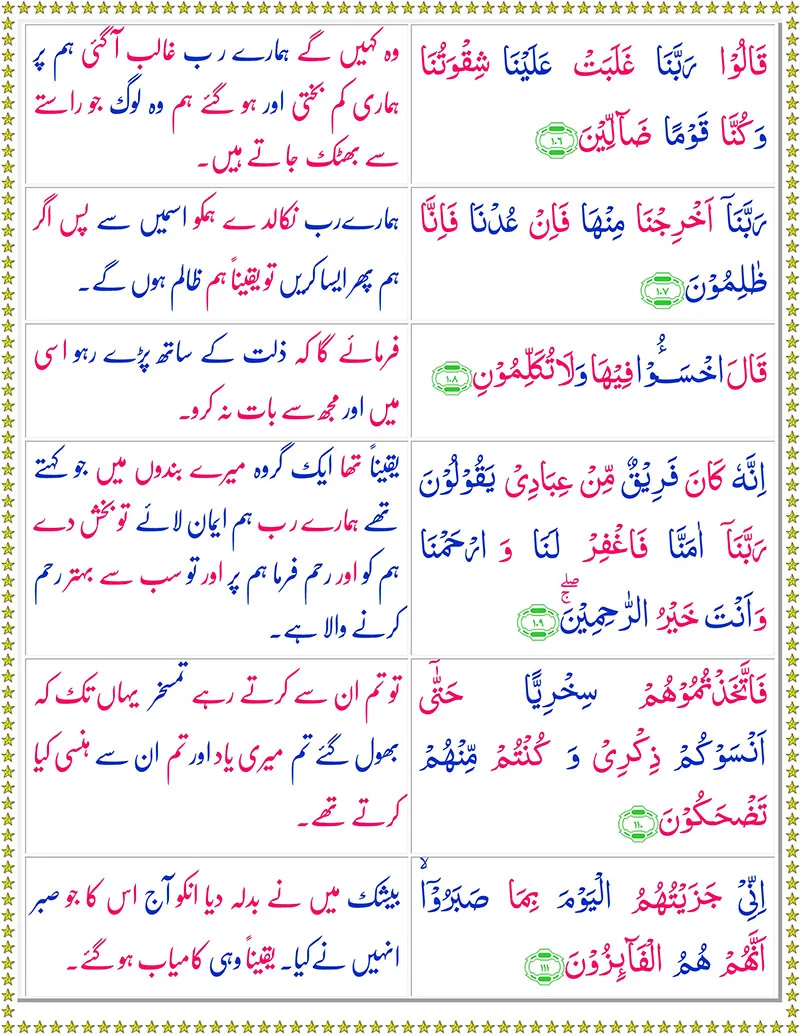 قَالُوْا رَبَّنَا غَلَبَتْ عَلَيْنَا شِقْوَتُنَا
وَكُنَّا قَوْمًا ضَآلِّيْنَ ۝۱۰۶
وہ کہیں گے ہمارے رب غالب آگئی ہم پر
ہماری کم بختی اور ہو گئے ہم وہ لوگ جو راستے
سے بھٹک جاتے ہیں۔
رَبَّنَآ اَخْرِجْنَا مِنْهَا فَاِنْ عُدْنَا فَاِنَّا
ظٰلِمُوْنَ ۝۱۰۷
ہمارے رب نکالدے ہمکو اسمیں سے پس اگر
ہم پھر ایسا کریں تو یقیناً ہم ظالم ہوں گے۔
قَالَ اخْسَـُٔوْا فِيْهَا وَلَا تُكَلِّمُوْنِ ۝۱۰۸
فرمائے گا کہ ذلت کے ساتھ پڑے رہو اسی
میں اور مجھ سے بات نہ کرو۔
اِنَّهٗ كَانَ فَرِيْقٌ مِّنْ عِبَادِيْ يَقُوْلُوْنَ
رَبَّنَآ اٰمَنَّا فَاغْفِرْ لَنَا وَ ارْحَمْنَا
وَاَنْتَ خَيْرُ الرّٰحِمِيْنَ ۝۱۰۹
یقیناً تھا ایک گروہ میرے بندوں میں جو کہتے
تھے ہمارے رب ہم ایمان لائے تو بخش دے
ہم کو اور رحم فرما ہم پر اور تو سب سے بہتر رحم
کرنے والا ہے۔
فَاتَّخَذْتُمُوْهُمْ سِخْرِيًّا حَتّٰٓى
اَنْسَوْكُمْ ذِكْرِيْ وَ كُنْتُمْ مِّنْهُمْ
تَضْحَكُوْنَ ۝۱۱۰
تو تم ان سے کرتے رہے تمسخر یہاں تک کہ
بھول گئے تم میری یاد اور تم ان سے ہنسی کیا
کرتے تھے۔
اِنِّيْ جَزَيْتُهُمُ الْيَوْمَ بِمَا صَبَرُوْٓا ۙ
اَنَّهُمْ هُمُ الْفَآئِزُوْنَ ۝۱۱۱
بیشک میں نے بدلہ دیا انکو آج اس کا جو صبر
انہیں نے کیا۔ یقیناً وہی کامیاب ہو گئے۔